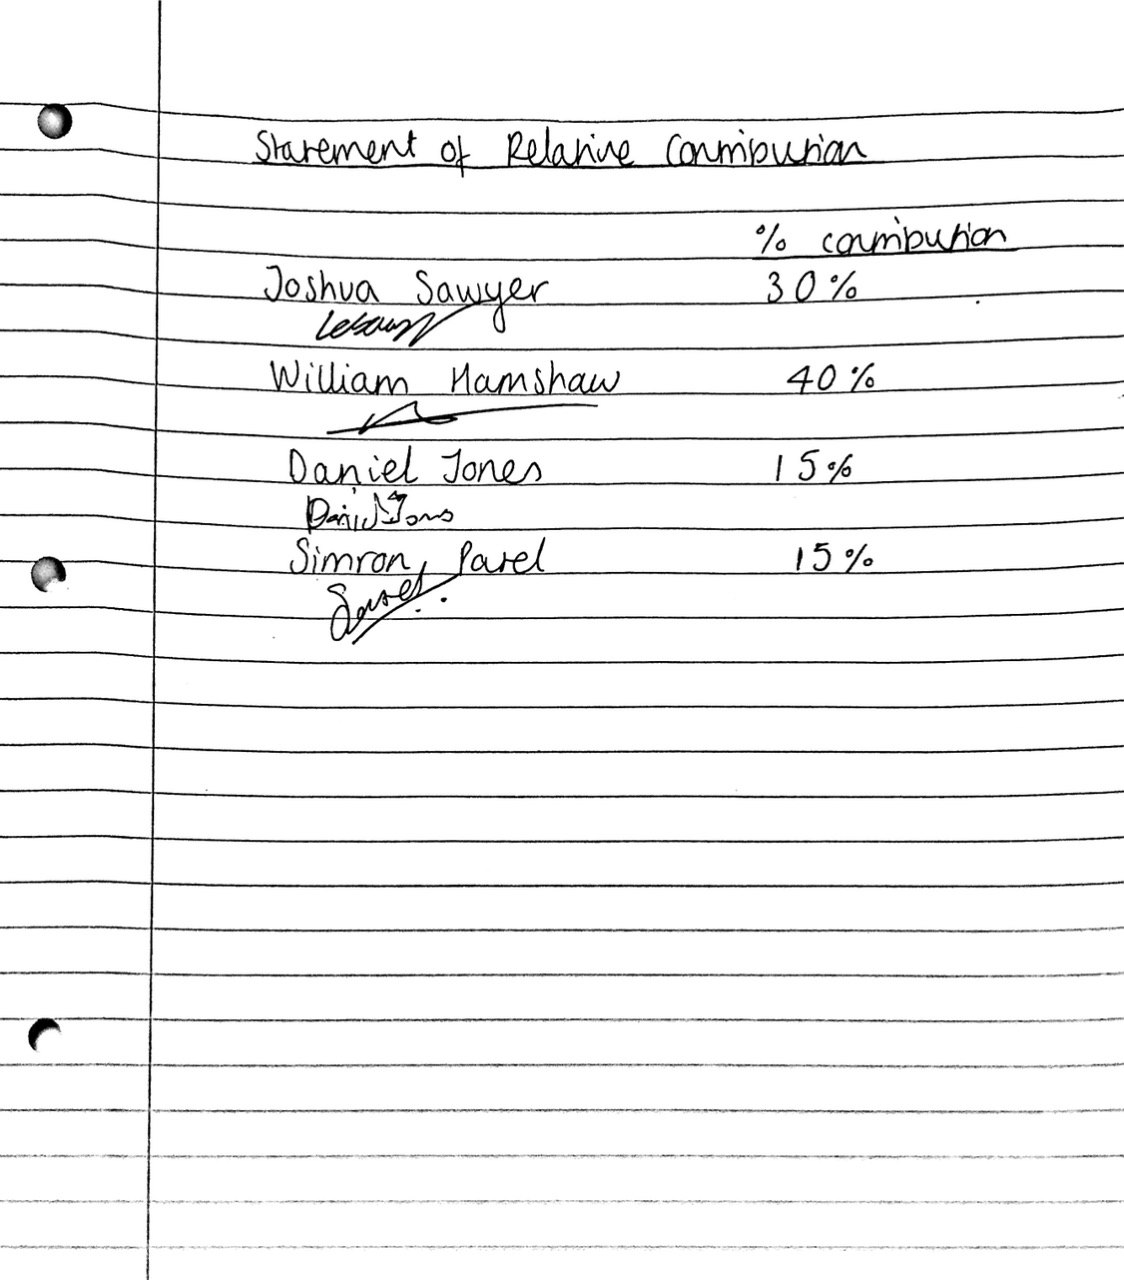 Statement of Relative Contribution
% contribution
Joshua Sawyer 30%
William Hamshaw 40%
Daniel Jones 15%
Daniel Jones
Simron Patel 15%